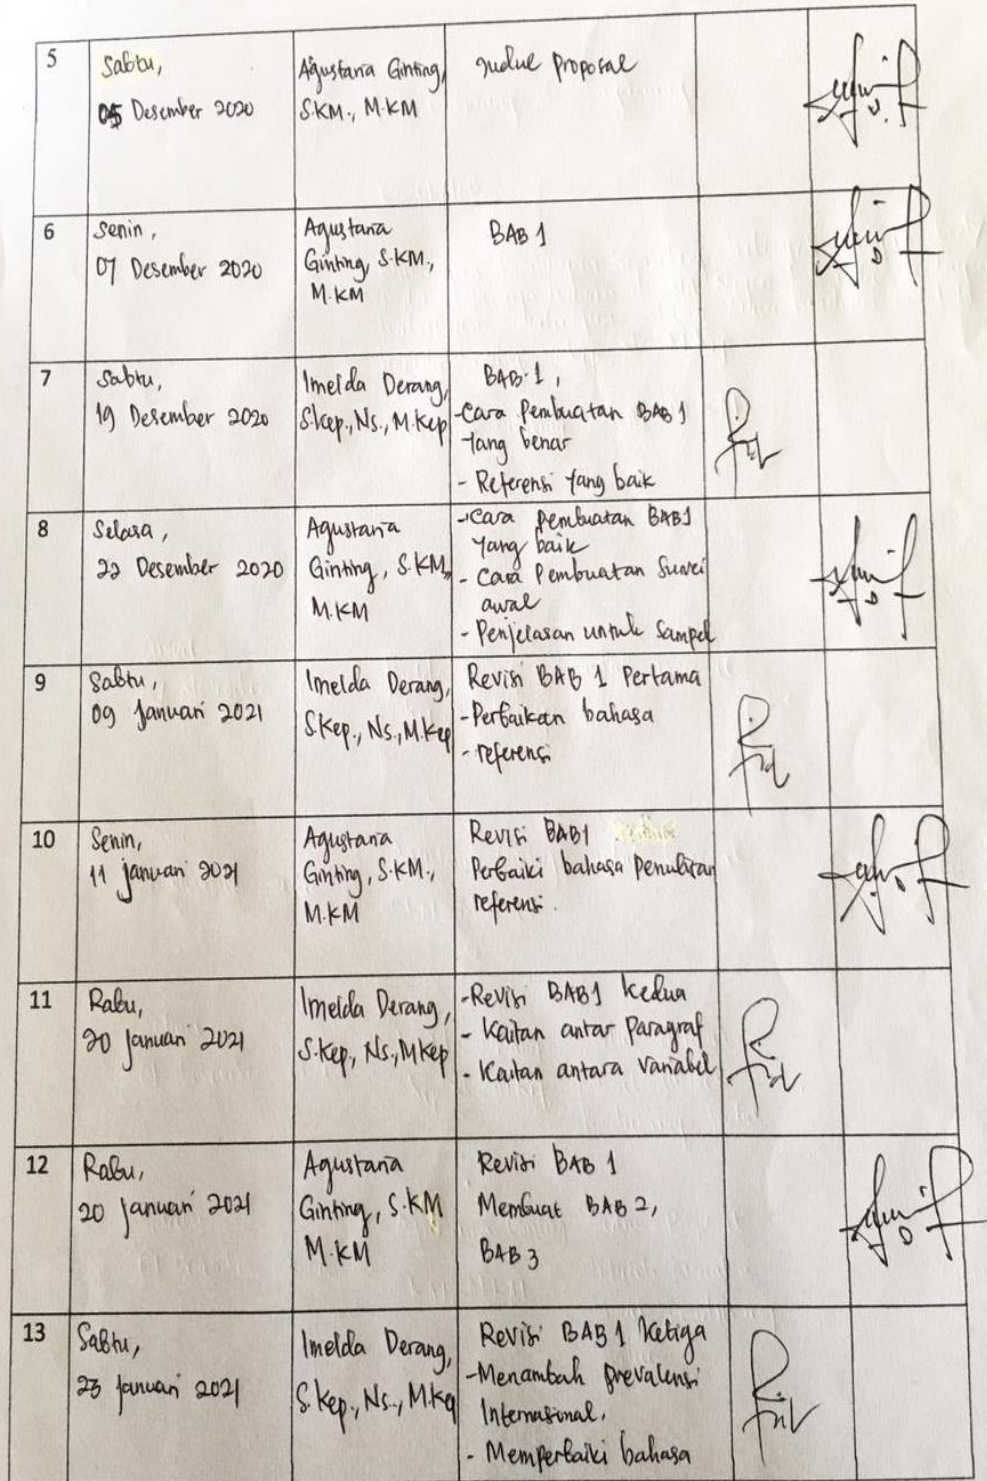 5
Sabtu,
05 Desember 2020
Agustana Ginting,
S.KM., M.KM
Judul Proposal
6
Senin,
07 Desember 2020
Agustana
Ginting, S.KM.,
M.KM
BAB 1
7
Sabtu,
19 Desember 2020
Imelda Derang,
S.kep., Ns., M.Kep
BAB 1,
- Cara Pembuatan BAB 1
Yang benar
- Referensi Yang baik
8
Selasa,
22 Desember 2020
Agustana
Ginting, S.KM,
M.KM
- Cara Pembuatan BAB 1
Yang baik
- Cara Pembuatan Survei
awal
- Penjelasan untuk Sampel
9
Sabtu,
09 Januari 2021
Imelda Derang,
S.Kep., Ns., M.Kep
Revisi BAB 1 Pertama
- Perbaikan bahasa
- referensi
10
Senin,
11 Januari 2021
Agustana
Ginting, S.KM.,
M.KM
Revisi BAB 1
Perbaiki bahasa Penulisan
referensi.
11
Rabu,
20 Januari 2021
Imelda Derang,
S.Kep., Ns., MKep
- Revisi BAB 1 kedua
- Kaitan antar Paragraf
- Kaitan antara variabel
12
Rabu,
20 Januari 2021
Agustana
Ginting, S.KM
M.KM
Revisi BAB 1
Membuat BAB 2,
BAB 3
13
Sabtu,
23 Januari 2021
Imelda Derang,
S.Kep., Ns., M.Kep
Revisi BAB 1 Ketiga
- Menambah Prevalensi
Internasional.
- Memperbaiki bahasa